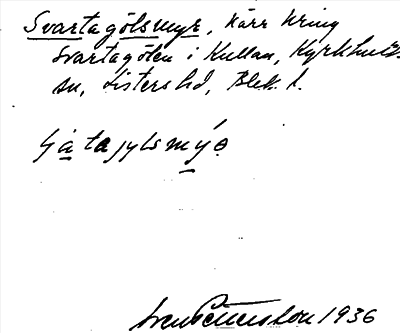 Svartagölsmyr, kärr kring
Svartagölen i Kullan, Kyrkhults
sn, Listers hd, Blek. l.
Sven Pettersson 1936